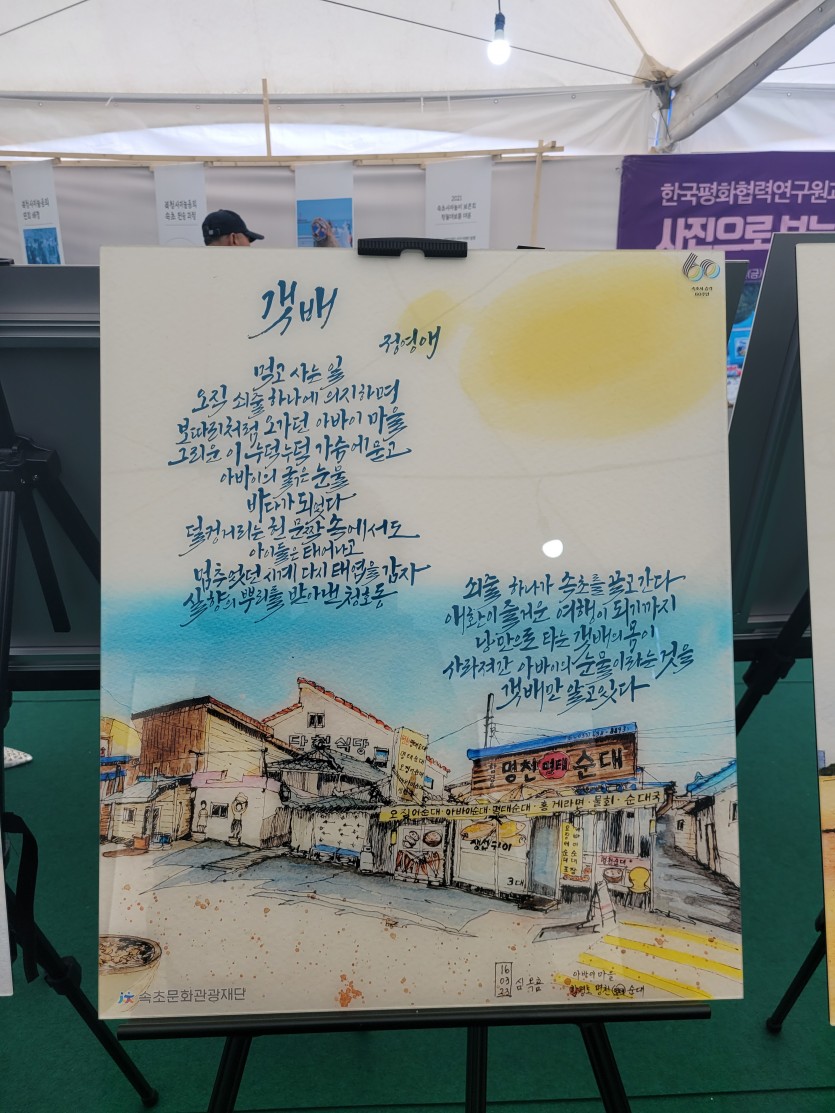 북청사자놀음의
북청사자놀음의
속초 전승 과정
2021
한국평화협력연구원과
사진으로 보는
60
갯배
정영애
먹고 사는 일
오직 쇠줄 하나에 의지하며
보따리처럼 오가던 아바이 마을
그리운 이 누덕누덕 가슴에 묻고
아바이의 굵은 눈물
바다가 되었다
덜컹거리는 천 문짝 속에서도
아이들은 태어나고
멈추었던 시계 다시 태엽을 감자
실향의 뿌리를 받아낸 청호동
쇠줄 하나가 속초를 끌고 간다
애환이 즐거운 여행이 되기까지
낭만으로 타는 갯배의 몸이
사라져간 아바이의 눈물이라는 것을
갯배만 알고 있다
다천식당
명천 명태 순대
오징어순대·아바이순대·명태순대·홍게라면·물회·순대국
생선구이
3대
16
03
23
아바이마을
명천 순대
속초문화관광재단